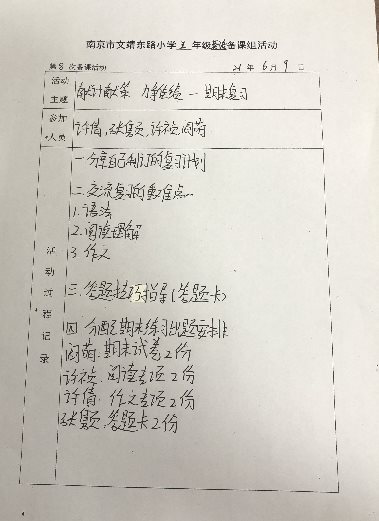 南京市文靖东路小学 五 年级英语备课组活动
第 8 次备课活动 21 年 6 月 9 日
活动
主题
献计献策 — 期末复习
参加
人员
许倩,张，许祯，阎萌
一 分享自己制订的复习计划
二.交流复习的重难点
1.语法
2.阅读理解
3 作文
三.答题技巧指导(答题卡)
四 分配期末练习出题安排
阎萌:期末试卷2份
许祯:阅读专项2份
许倩:作文专项2份
张:答题卡2份
活动过程记录